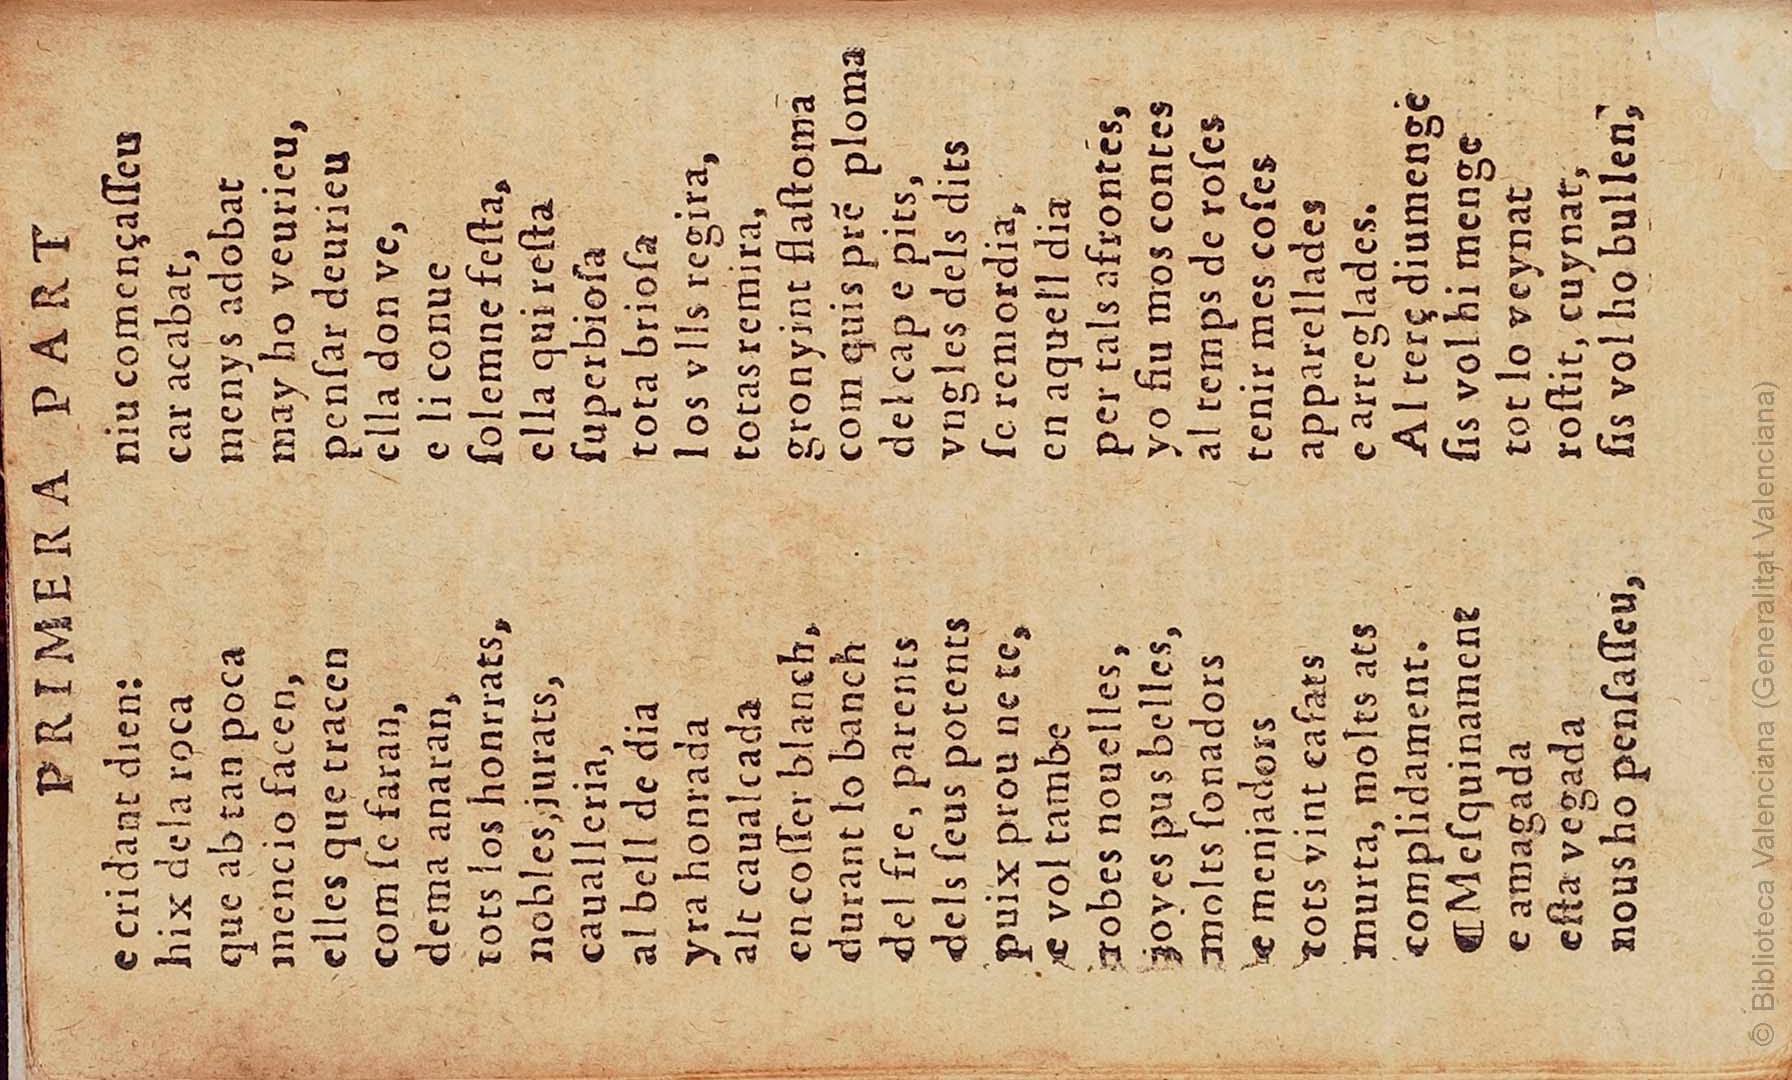 PRIMERA PART
e cridant dien:
hix de la roca
que ab tan poca
mencio facen,
elles que tracen
com ſe faran,
dema anaran,
tots los honrrats,
nobles, jurats,
caualleria,
al bell de dia
yra honrada
alt caualcada
en coſſer blanch,
durant lo banch
del fre, parents
dels ſeus potents
puix prou ne te,
e vol tambe
robes nouelles,
joyes pus belles,
molts ſonadors
e menjadors
tots vint caſats
murta, molts ats
complidament.
¶Meſquinament
e amagada
eſta vegada
nous ho penſaſſeu,
niu començaſſeu
car acabat,
menys adobat
may ho veurieu,
penſar deurieu
ella don ve,
e li conue
ſolemne feſta,
ella qui reſta
ſuperbioſa
tota brioſa
los vlls regira,
totas remira,
gronyint flaſtoma
com quis prẽ ploma
del cap e pits,
vngles dels dits
ſe remordia,
en aquell dia
per tals afrontes,
yo fiu mos contes
al temps de roſes
tenir mes coſes
apparellades
e arreglades.
Al terç diumenge
ſis vol hi menge
tot lo veynat
roſtit, cuynat,
ſis vol ho bullen,
© Biblioteca Valenciana (Generalitat Valenciana)